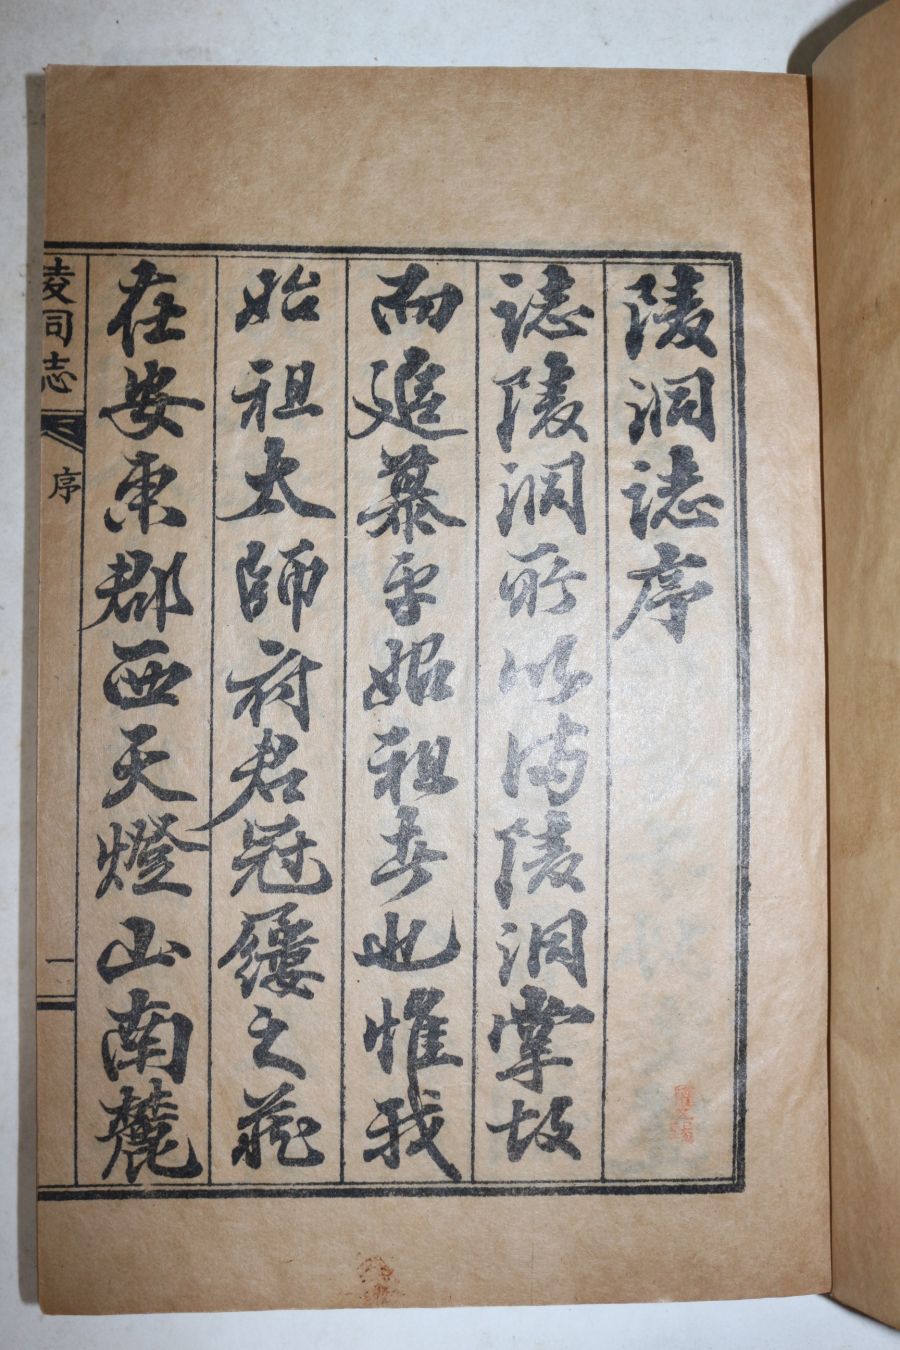 陵洞誌序
誌陵洞所以陵洞掌故
而追慕乎始祖者也惟我
始祖太師府君冠履之藏
在安東郡西天燈山南麓
陵洞志 序 一